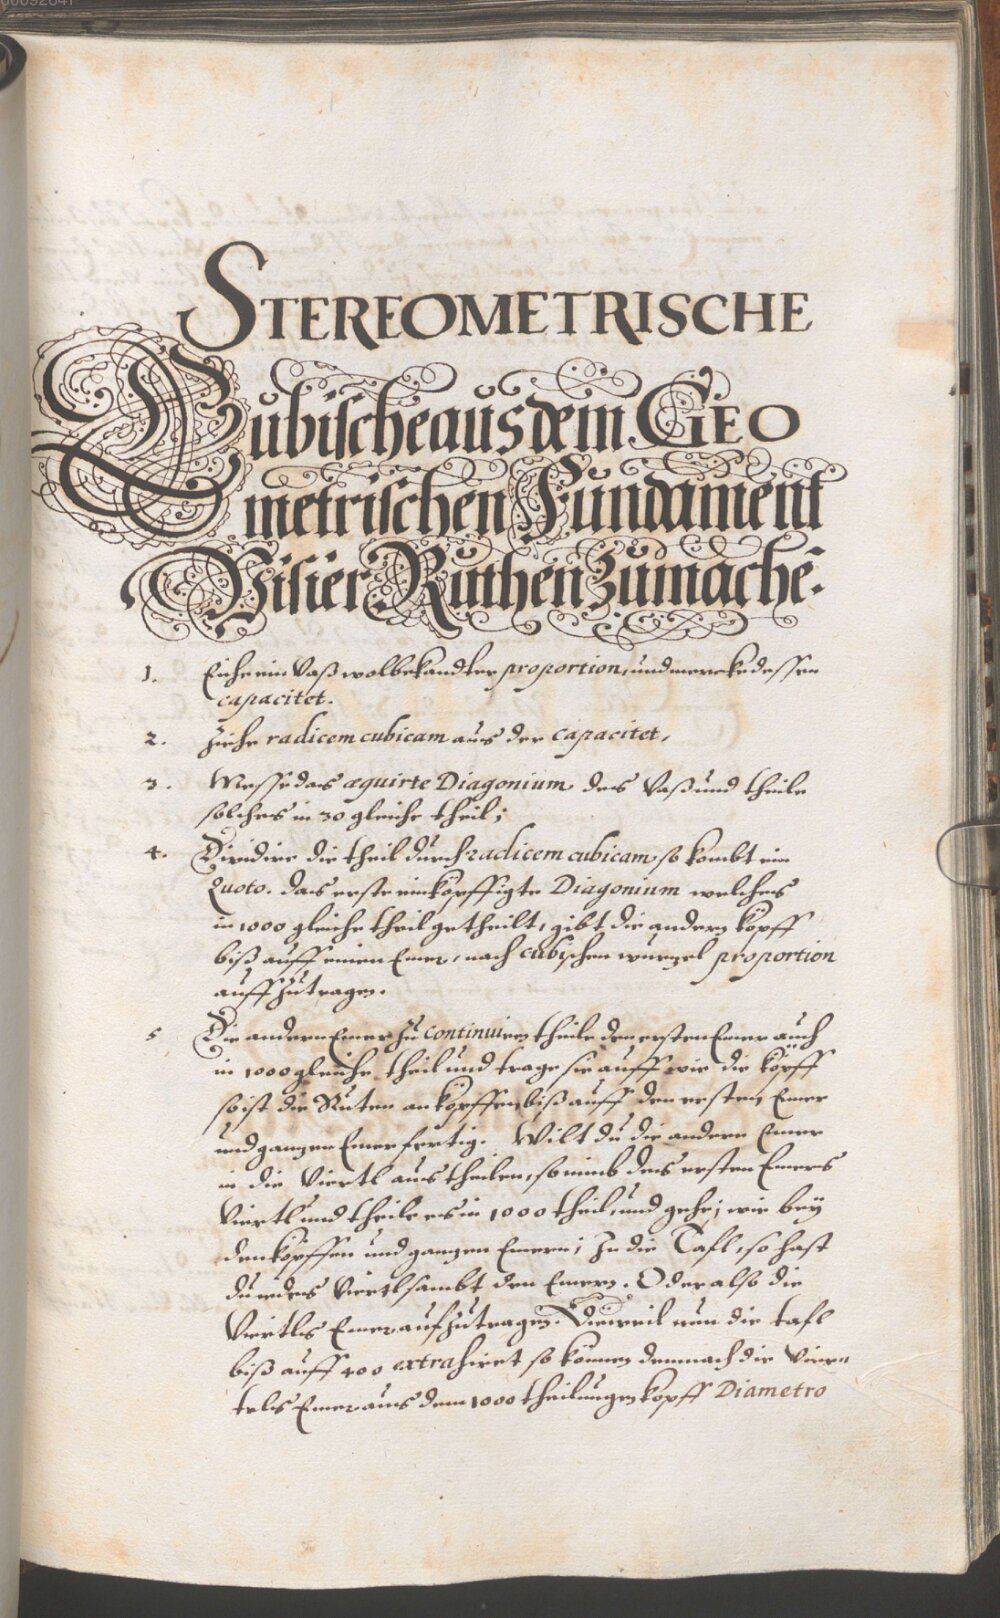 STEREOMETRISCHE
Cubische aus dem GEO
metrischen Fundament
Visier Ruthen zu mache̅.
1. Eiche ein Vaß wolbekandter proportion, und mercke dessen
capacitet.
2. Ziehe radicem cubicam aus der capacitet,
3. Messe das æquirte Diagonium des Vaß und theile
solches in 30 gleiche theil;
4. Dividire die theil durch radicem cubicam, so kombt ein
Quoto. das erste einköpffigte Diagonium welches
in 1000 gleiche theil getheilt, gibt die andern köpff
biß auff einen Emer, nach cubischen wurzel proportion
auff zutragen.
5 Die andern Emer zu continuirn theile den ersten Emer auch
in 1000 gleiche theil und trage sie auff wie die köpff
so ist die Ruten an köpffen biß auff den ersten Emer
und ganzen Emer fertig. Wilt du die andern Emer
in die Viertl aus theilen, so nimb des ersten Emers
Viertl und theile es in 1000 theil, und gehe, wie bey
den köpffen und ganzen Emern; In die Tafl, so hast
du iedes Viertl sambt den Emern. Oder also die
Viertls Emer aufzutragen. Dieweil nun die tafl
biß auff 400 extrahirt so können demnach die Viern
tels Emer aus dem 1000 theilungen kopff Diametro